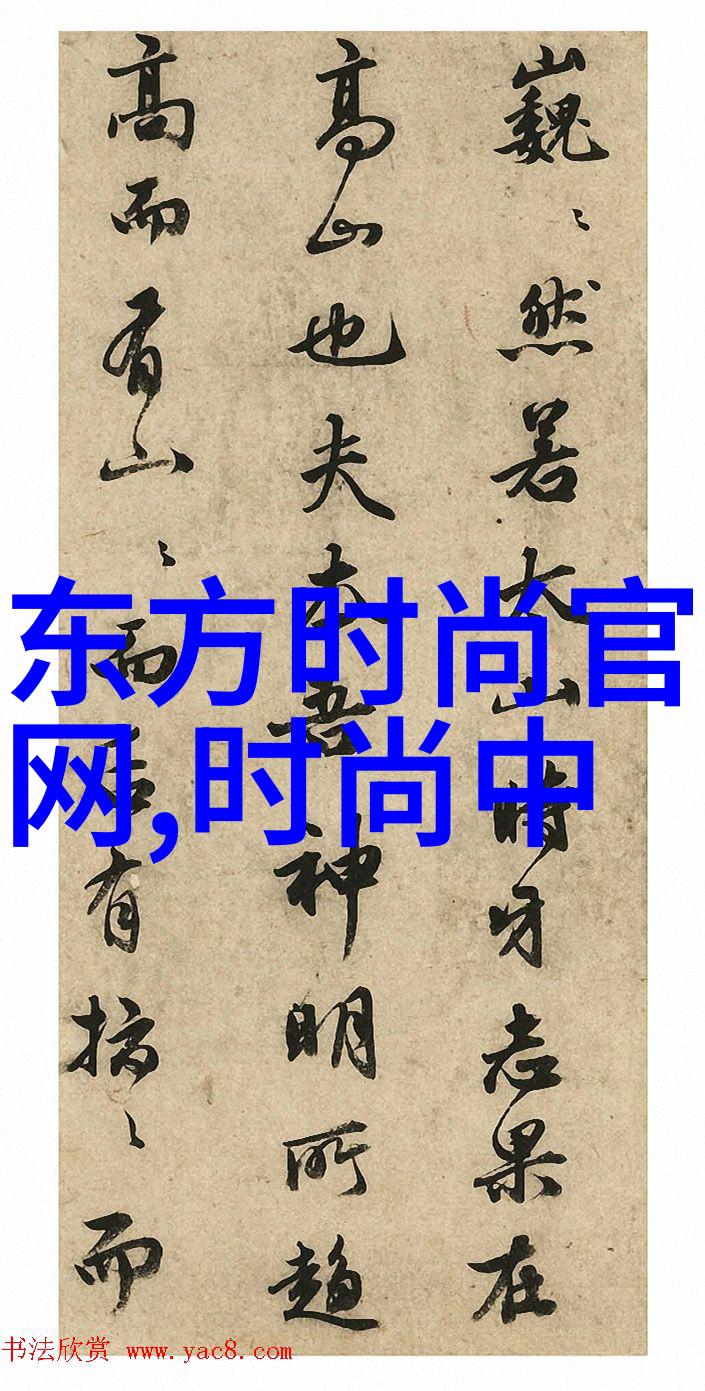 巍〻然若大山時牙志果在
高山也夫本吾神明所趨
高而有山〻而后有〻而
东方时尚官
网,时尚中
书法欣赏 www.yac8.com